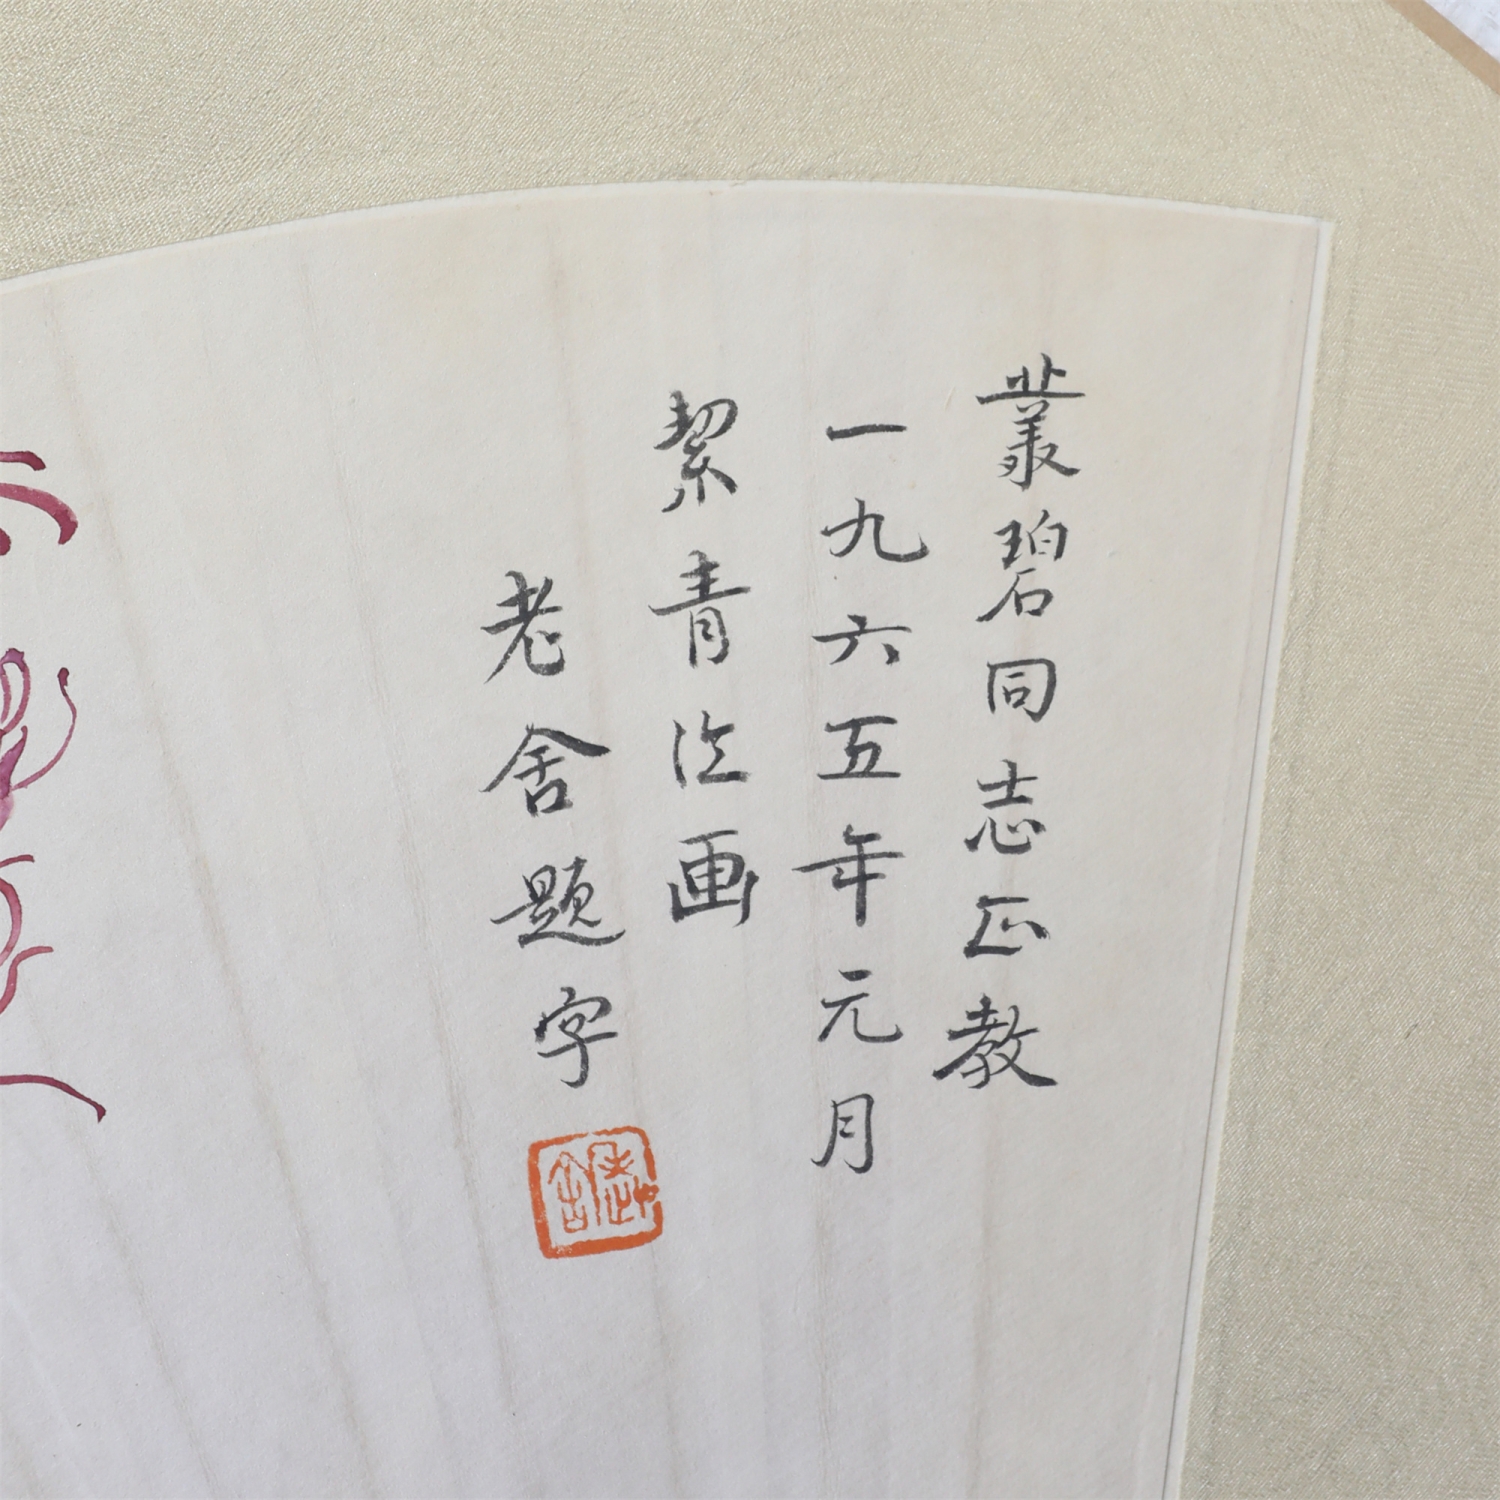 叢碧同志正教
一九六五年元月
絜青作画
老舍题字
老舍